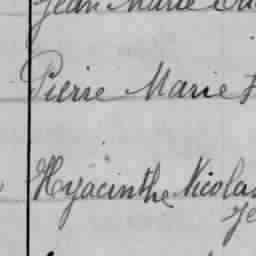 Jean Marie
Pierre Marie
Hyacinthe Nicolas